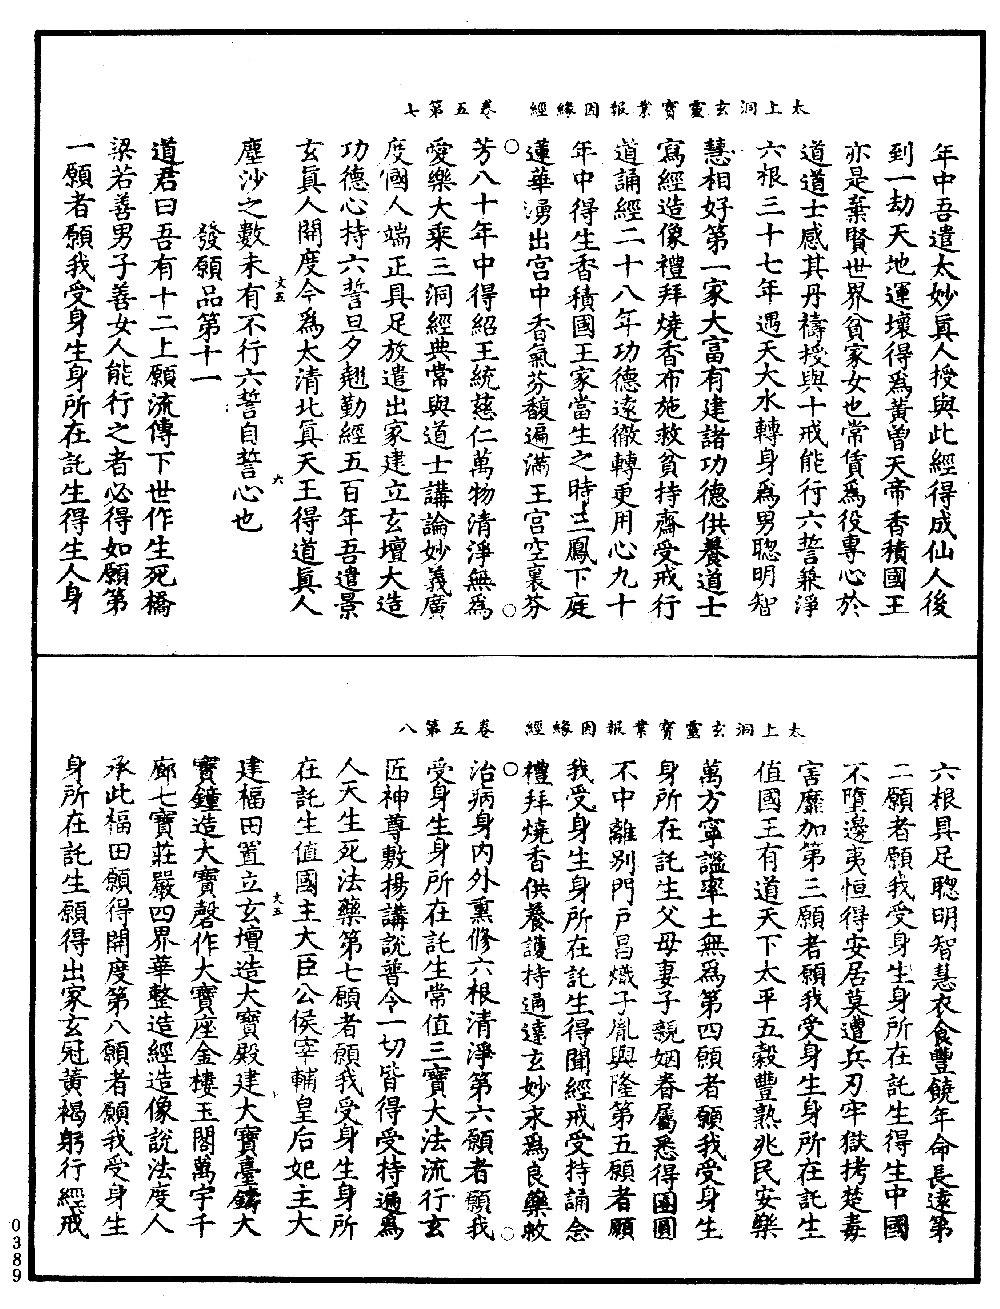 太上洞玄靈寶業報因緣經　卷五第七
年中吾遣太妙眞人授與此經得成仙人後
到一劫天地運壞得爲黃曽天帝香積國王
亦是棄賢世界貧家女也常賃爲役專心於
道道士感其丹禱授與十戒能行六誓兼淨
六根三十七年遇天大水轉身爲男聦明智
慧相好第一家大富有建諸功德供養道士
寫經造像禮拜燒香布施救貧持齋受戒行
道誦經二十八年功德遠徹轉更用心九十
年中得生香積國王家當生之時三鳳下庭
蓮華湧出宮中香氣芬馥遍滿王宮空裏芬
芳八十年中得紹王統慈仁萬物清淨無爲
愛樂大乘三洞經典常與道士講論妙義廣
度國人端正具足放遣出家建立玄壇大造
功德心持六誓旦夕翹勤經五百年吾遣景
玄眞人開度今爲太清北眞天王得道眞人
塵沙之數未有不行六誓自誓心也
文五　六
發願品第十一
道君曰吾有十二上願流傳下世作生死橋
梁若善男子善女人能行之者必得如願第
一願者願我受身生身所在託生得生人身
太上洞玄靈寶業報因緣經　卷五第八
六根具足聦明智慧衣食豐饒年命長遠第
二願者願我受身生身所在託生得生中國
不墮邊夷恒得安居莫遭兵刃牢獄拷楚毒
害靡加第三願者願我受身生身所在託生
值國王有道天下太平五穀豐熟兆民安樂
萬方寧謐率土無爲第四願者願我受身生
身所在託生父母妻子親姻眷屬悉得團圓
不中離別門戶昌熾子胤興隆第五願者願
我受身生身所在託生得聞經戒受持誦念
禮拜燒香供養護持通達玄妙求爲良藥救
治病身內外熏修六根清淨第六願者願我
受身生身所在託生常值三寶大法流行玄
匠神尊敷揚講說普令一切皆得受持遍爲
人天生死法藥第七願者願我受身生身所
在託生值國主大臣公侯宰輔皇后妃主大
文五
建福田置立玄壇造大寶殿建大寶臺鑄大
寶鐘造大寶磬作大寶座金樓玉閣萬宇千
廊七寶莊嚴四界華整造經造像說法度人
承此福田願得開度第八願者願我受身生
身所在託生願得出家玄冠黃褐躬行經戒
0389